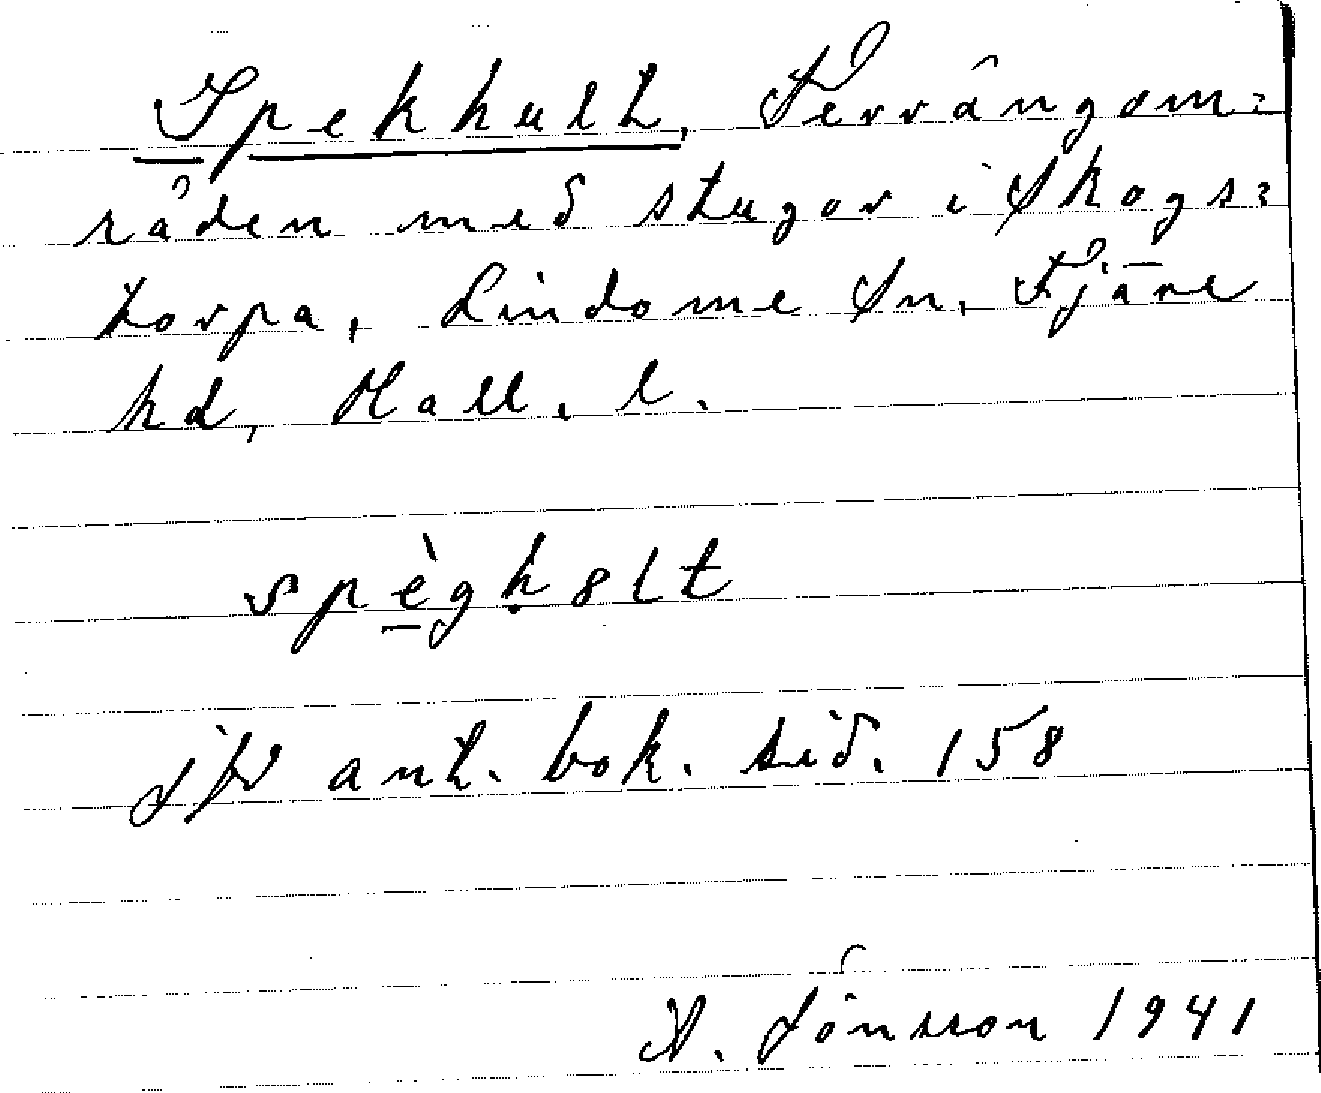 Spekhult, Terrängom=
råden med stugor i Skogs=
torpa, Lindome sn, Fjäre
hd, Hall. l.
spèghult
jfr ant. bok. sid. 158
A. Jönsson 1941